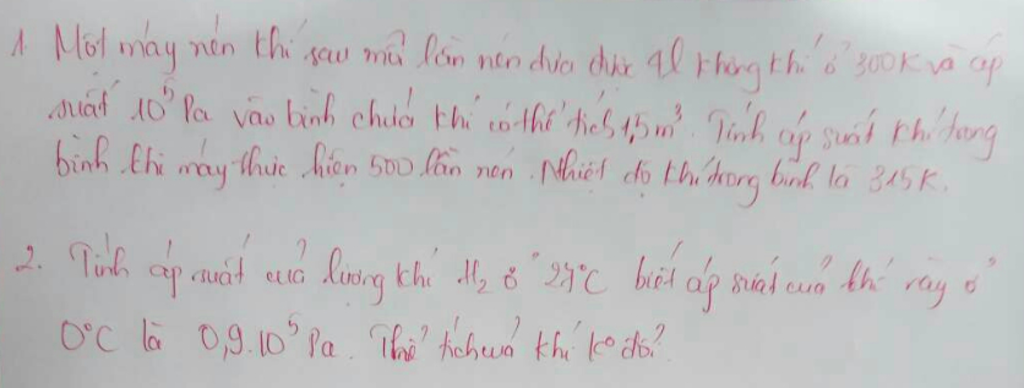 1. Một máy nén khí sau mỗi lần nén đưa được 4l không khí ở 300K và áp
suất 10⁵ Pa vào bình chứa khí có thể tích 1,5 m³. Tính áp suất khí trong
bình khi máy thực hiện 500 lần nén. Nhiệt độ khí trong bình là 315K.
2. Tính áp suất của lượng khí H₂ ở 27°C biết áp suất của khí này ở
0°C là 0,9.10⁵ Pa. Thể tích của khí k° đổi?